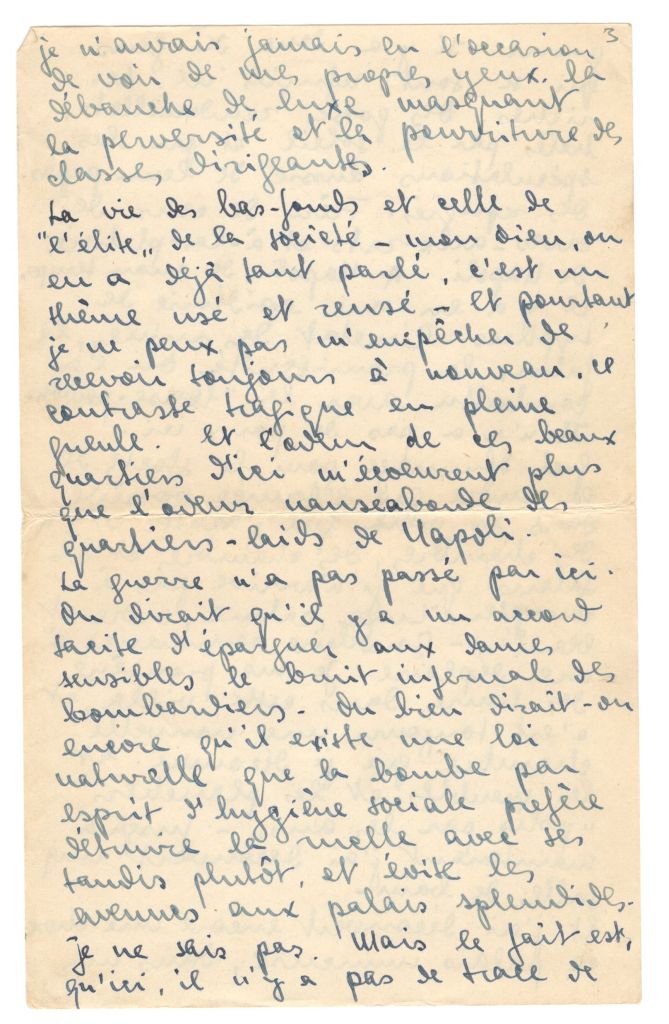 3
je n'aurais jamais eu l'occasion
de voir de mes propres yeux la
débauche de luxe masquant
la perversité et la pourriture des
classes dirigeantes.
La vie des bas-fonds et celle de
"l'élite" de la société – mon Dieu, on
en a déjà tant parlé, c'est un
thème usé et reusé – Et pourtant
je ne peux pas m'empêcher de
recevoir toujours à nouveau, ce
contraste tragique en pleine
gueule et l'odeur de ces beaux
quartiers d'ici m'écoeurent plus
que l'odeur nauséabonde des
quartiers-laids de Napoli.
La guerre n'a pas passé par ici.
On dirait qu'il y a un accord
tacite d'épargner aux dames
sensibles le bruit infernal des
bombardiers. Ou bien dirait-on
encore qu'il existe une loi
naturelle que la bombe par
esprit d'hygiène sociale préfère
détruire la ruelle avec ses
taudis plutôt, et évite les
avenues aux palais splendides.
Je ne sais pas. Mais le fait est,
qu'ici, il n'y a pas de trace de